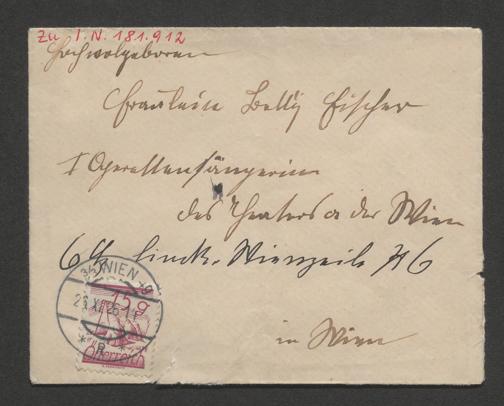 Zu I.N. 181.912
Hochwolgeboren
Fräulein Betty Fischer
I Operettensängerin
des Theaters a der Wien
Linck. Wienzeile No 6
in Wien
WIEN
15 g
Österreich